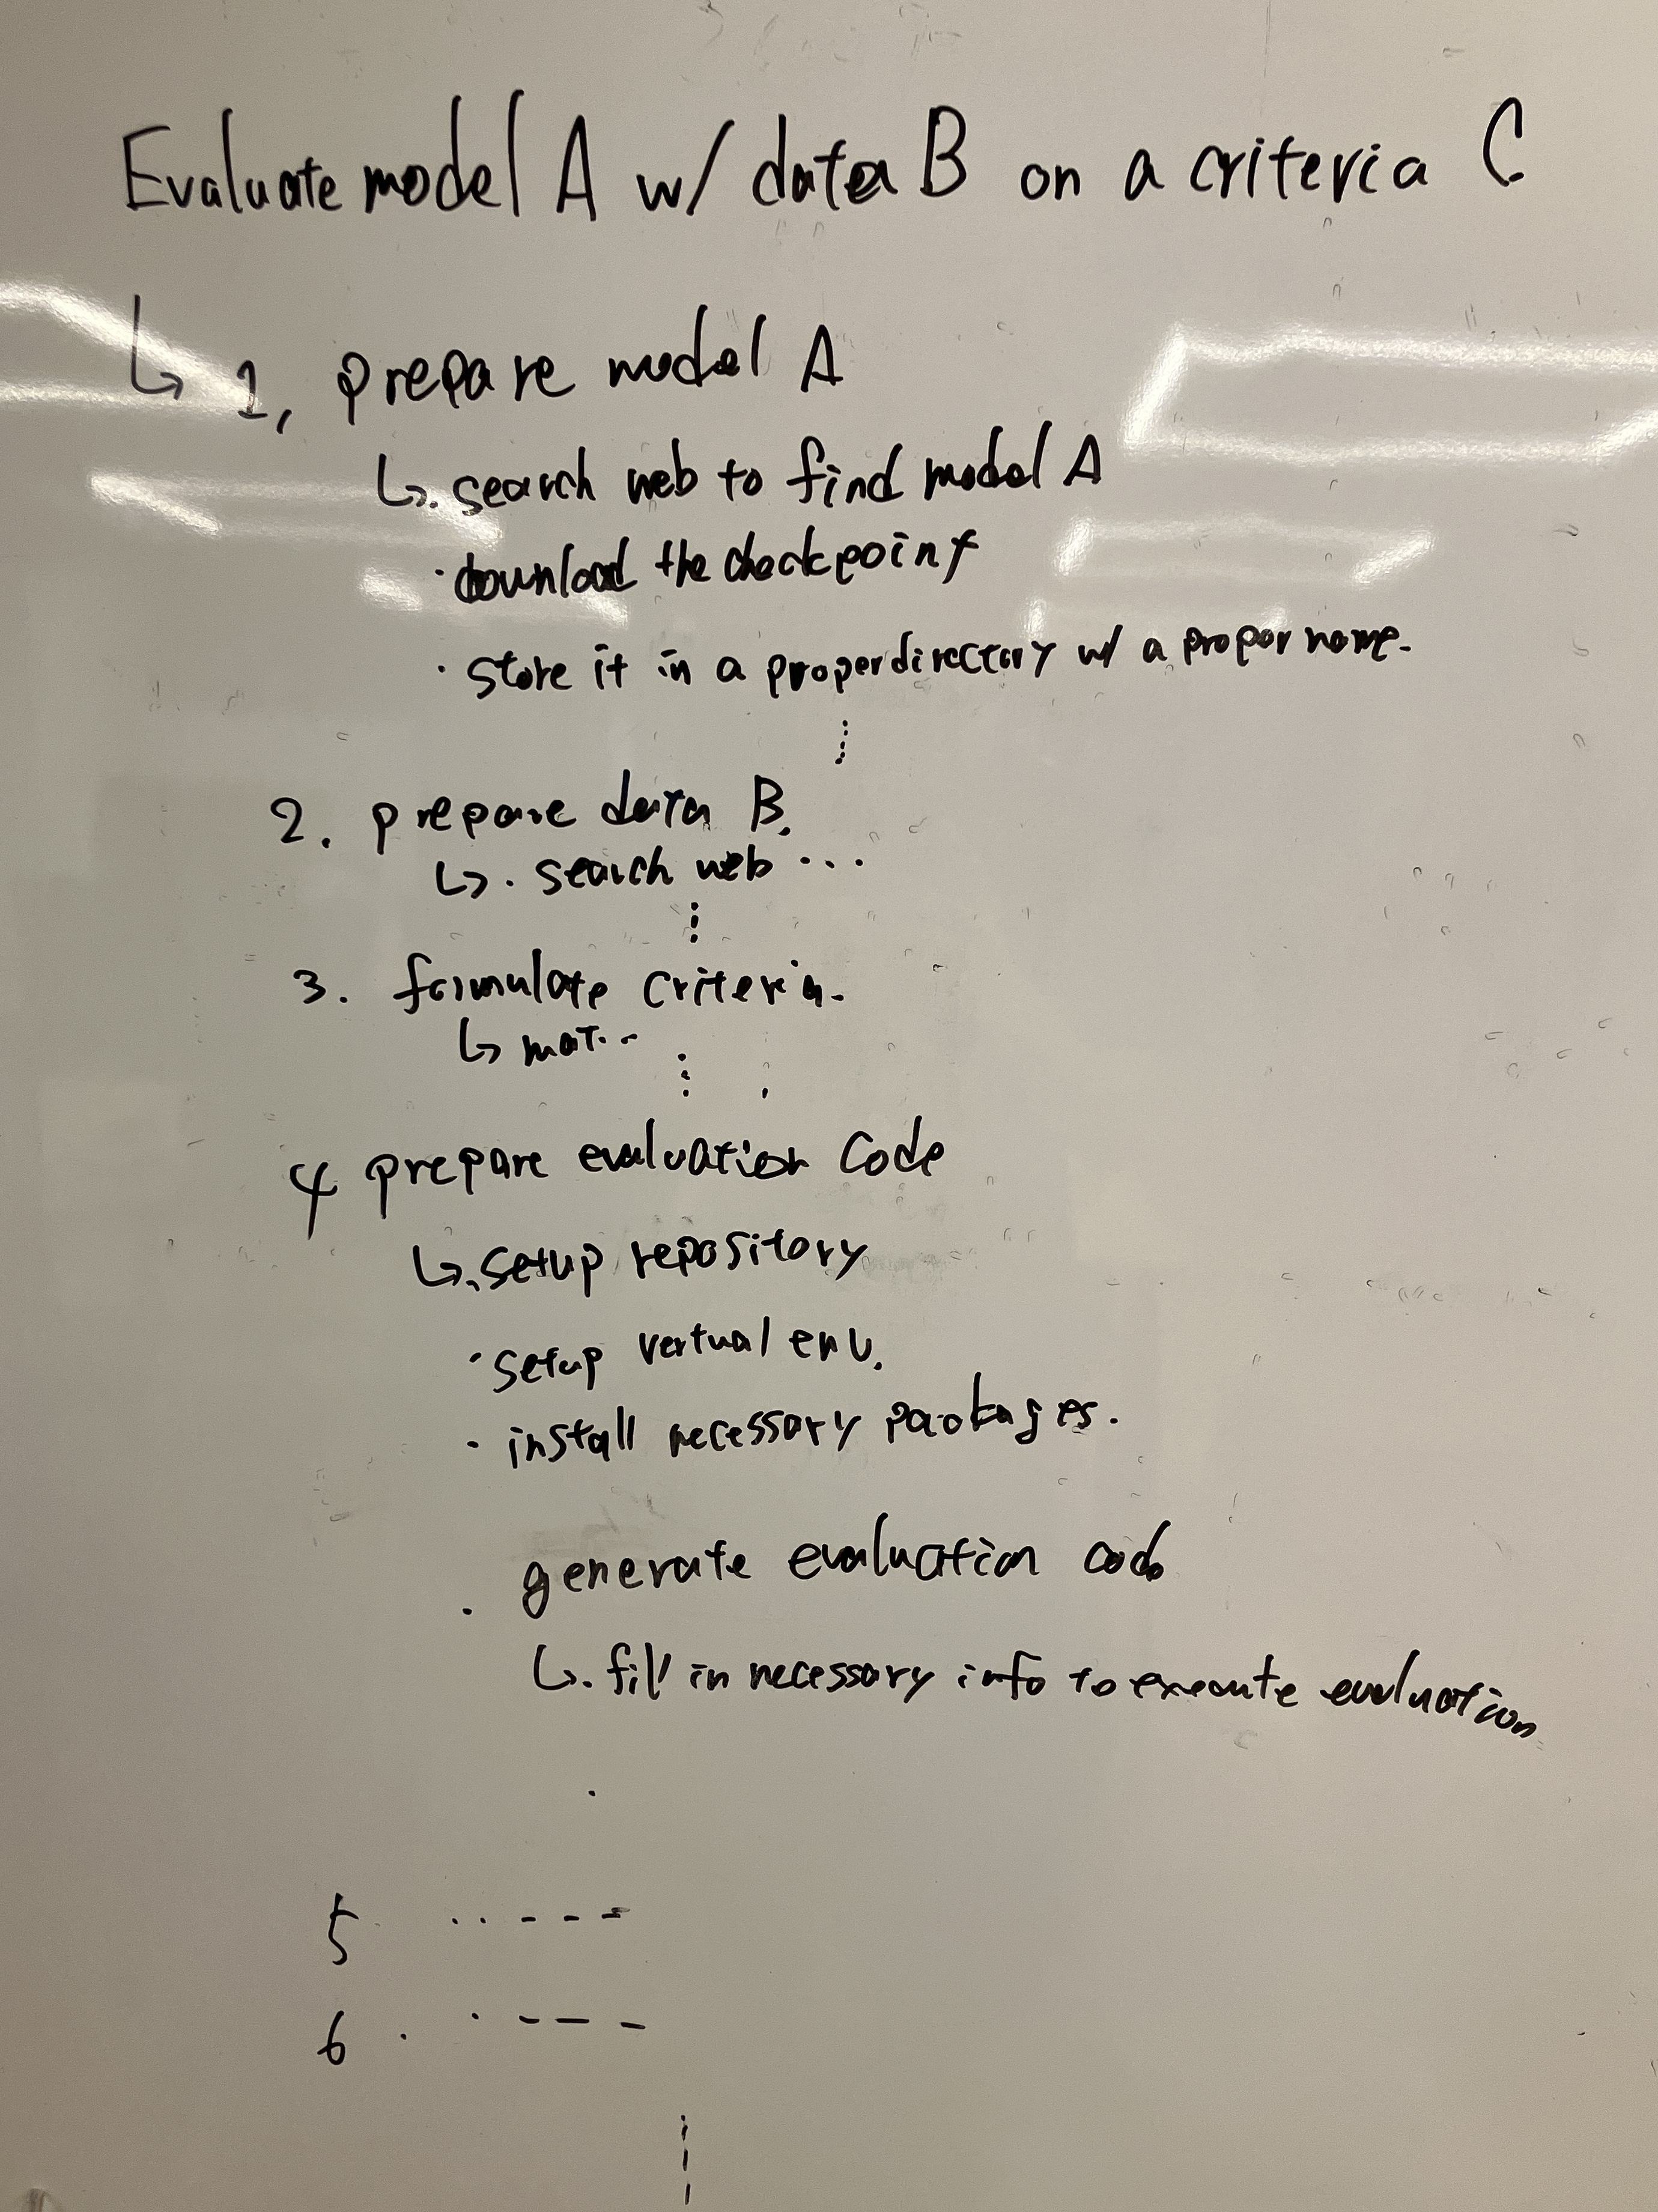 Evaluate model A w/ data B on a criteria C
↳ 1, prepare model A
↳ · search web to find model A
· download the checkpoint
· store it in a proper directory w/ a proper name.
⋮
2. prepare data B.
↳ · search web ...
⋮
3. formulate criteria.
↳ mat...
⋮
4 prepare evaluation code
↳ · setup repository
· setup vertual env.
· install necessary packages.
· generate evaluation code
↳ · fill in necessary info to execute evaluation
·
5 · · - - -
6 . · - - -
⋮